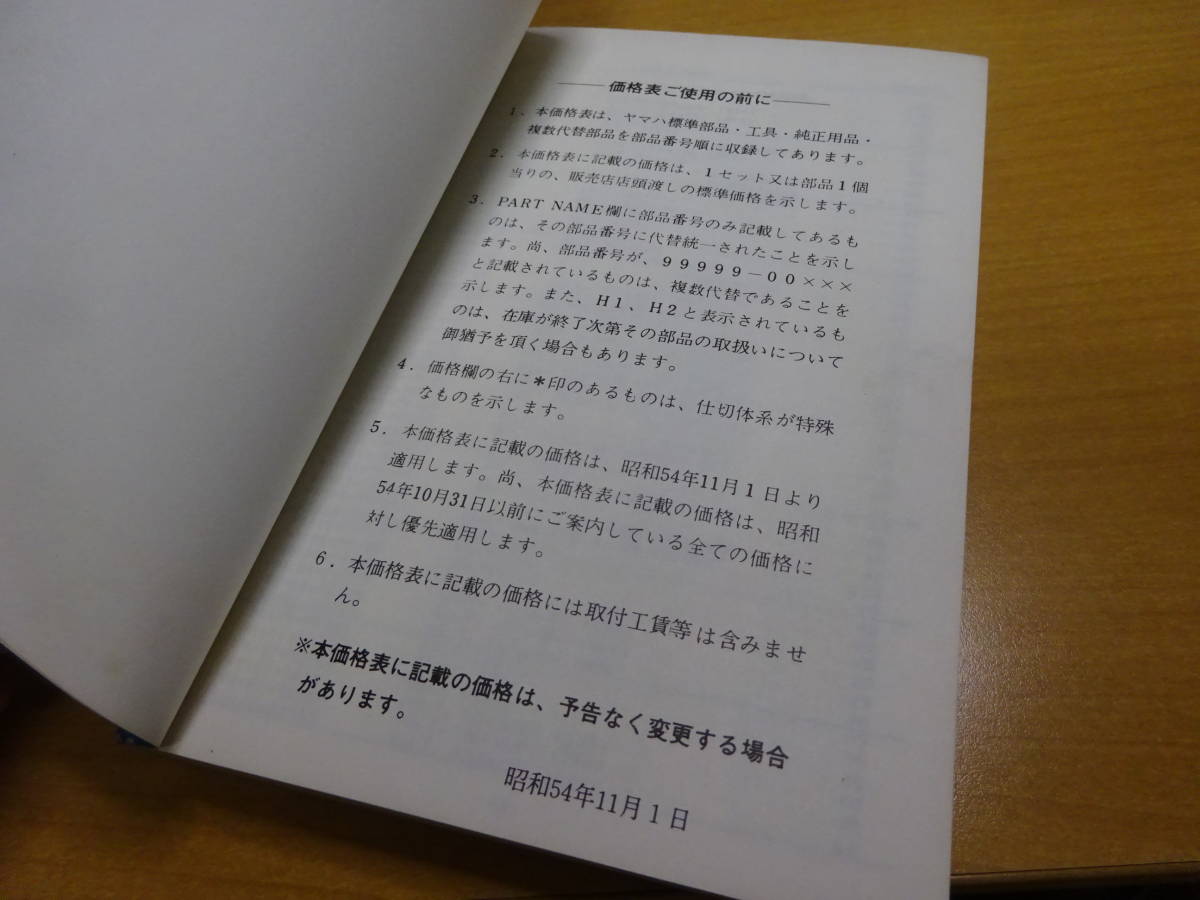 価格表ご使用の前に
1．本価格表は、ヤマハ標準部品・工具・純正用品・
複数代替部品を部品番号順に収録してあります。
2．本価格表に記載の価格は、1セット又は部品1個
当りの、販売店店頭渡しの標準価格を示します。
3．PART NAME欄に部品番号のみ記載してあるも
のは、その部品番号に代替統一されたことを示し
ます。尚、部品番号が、99999－00×××
と記載されているものは、複数代替であることを
示します。また、H1、H2と表示されているも
のは、在庫が終了次第その部品の取扱いについて
御猶予を頂く場合もあります。
4．価格欄の右に＊印のあるものは、仕切体系が特殊
なものを示します。
5．本価格表に記載の価格は、昭和54年11月1日より
適用します。尚、本価格表に記載の価格は、昭和
54年10月31日以前にご案内している全ての価格に
対し優先適用します。
6．本価格表に記載の価格には取付工賃等は含みませ
ん。
※本価格表に記載の価格は、予告なく変更する場合
があります。
昭和54年11月1日